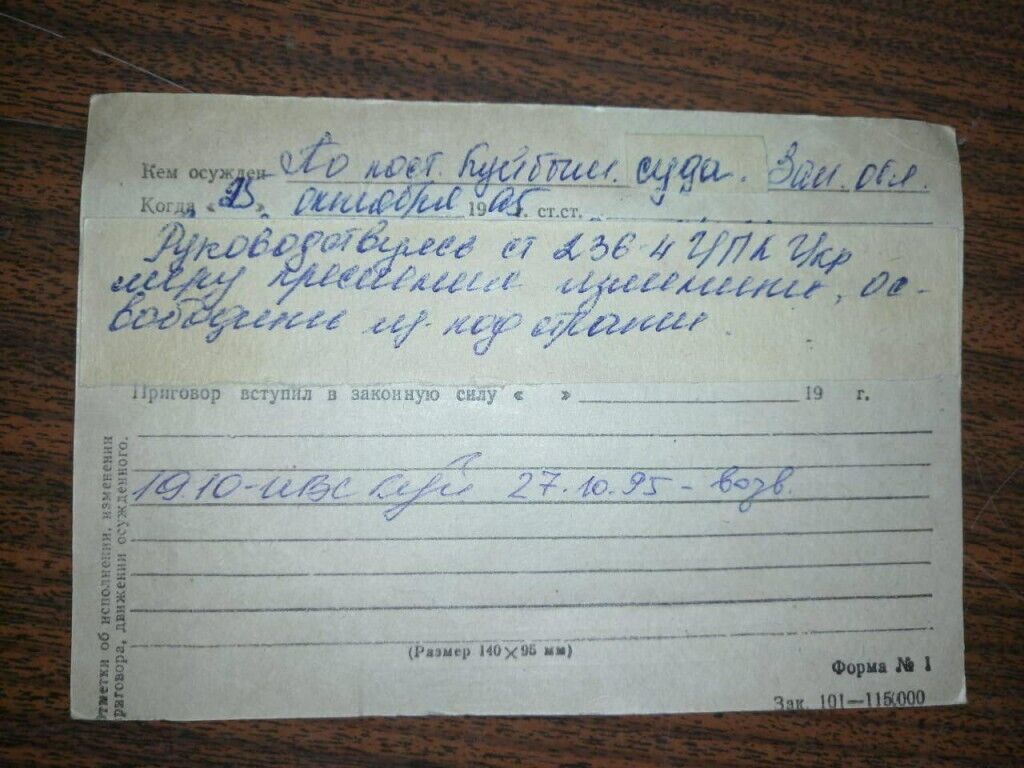 Кем осужден По пост. Куйбыш. суда. Зап. обл.
Когда « 25 » октября 1995г. ст.ст.
Руководствуясь ст 236-4 УПК Укр
меру пресечения изменить, ос-
вободить из-под стражи.
Приговор вступил в законную силу « » 19 г.
19.10-ИВС Куй 27.10.95 - возв.
(Размер 140×95 мм)
Форма № 1
Зак. 101—115000
Отметки об исполнении, изменении
приговора, движении осужденного.